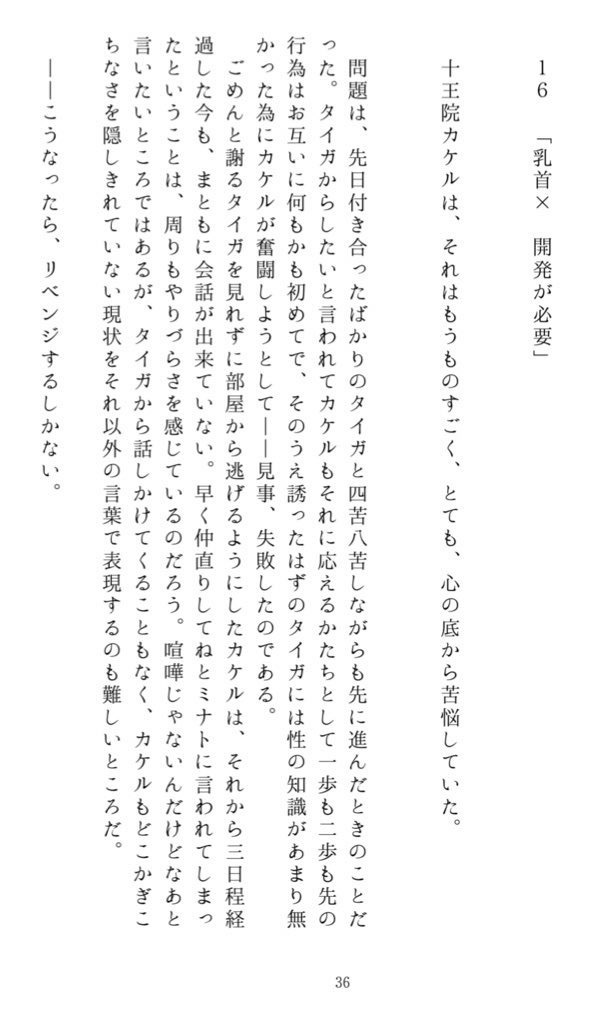 16 「乳首× 開発が必要」
十王院カケルは、それはもうものすごく、とても、心の底から苦悩していた。
問題は、先日付き合ったばかりのタイガと四苦八苦しながらも先に進んだときのことだ
った。タイガからしたいと言われてカケルもそれに応えるかたちとして一歩も二歩も先の
行為はお互いに何もかも初めてで、そのうえ誘ったはずのタイガには性の知識があまり無
かった為にカケルが奮闘しようとして――見事、失敗したのである。
ごめんと謝るタイガを見れずに部屋から逃げるようにしたカケルは、それから三日程経
過した今も、まともに会話が出来ていない。早く仲直りしてねとミナトに言われてしまっ
たということは、周りもやりづらさを感じているのだろう。喧嘩じゃないんだけどなあと
言いたいところではあるが、タイガから話しかけてくることもなく、カケルもどこかぎこ
ちなさを隠しきれていない現状をそれ以外の言葉で表現するのも難しいところだ。
――こうなったら、リベンジするしかない。
36